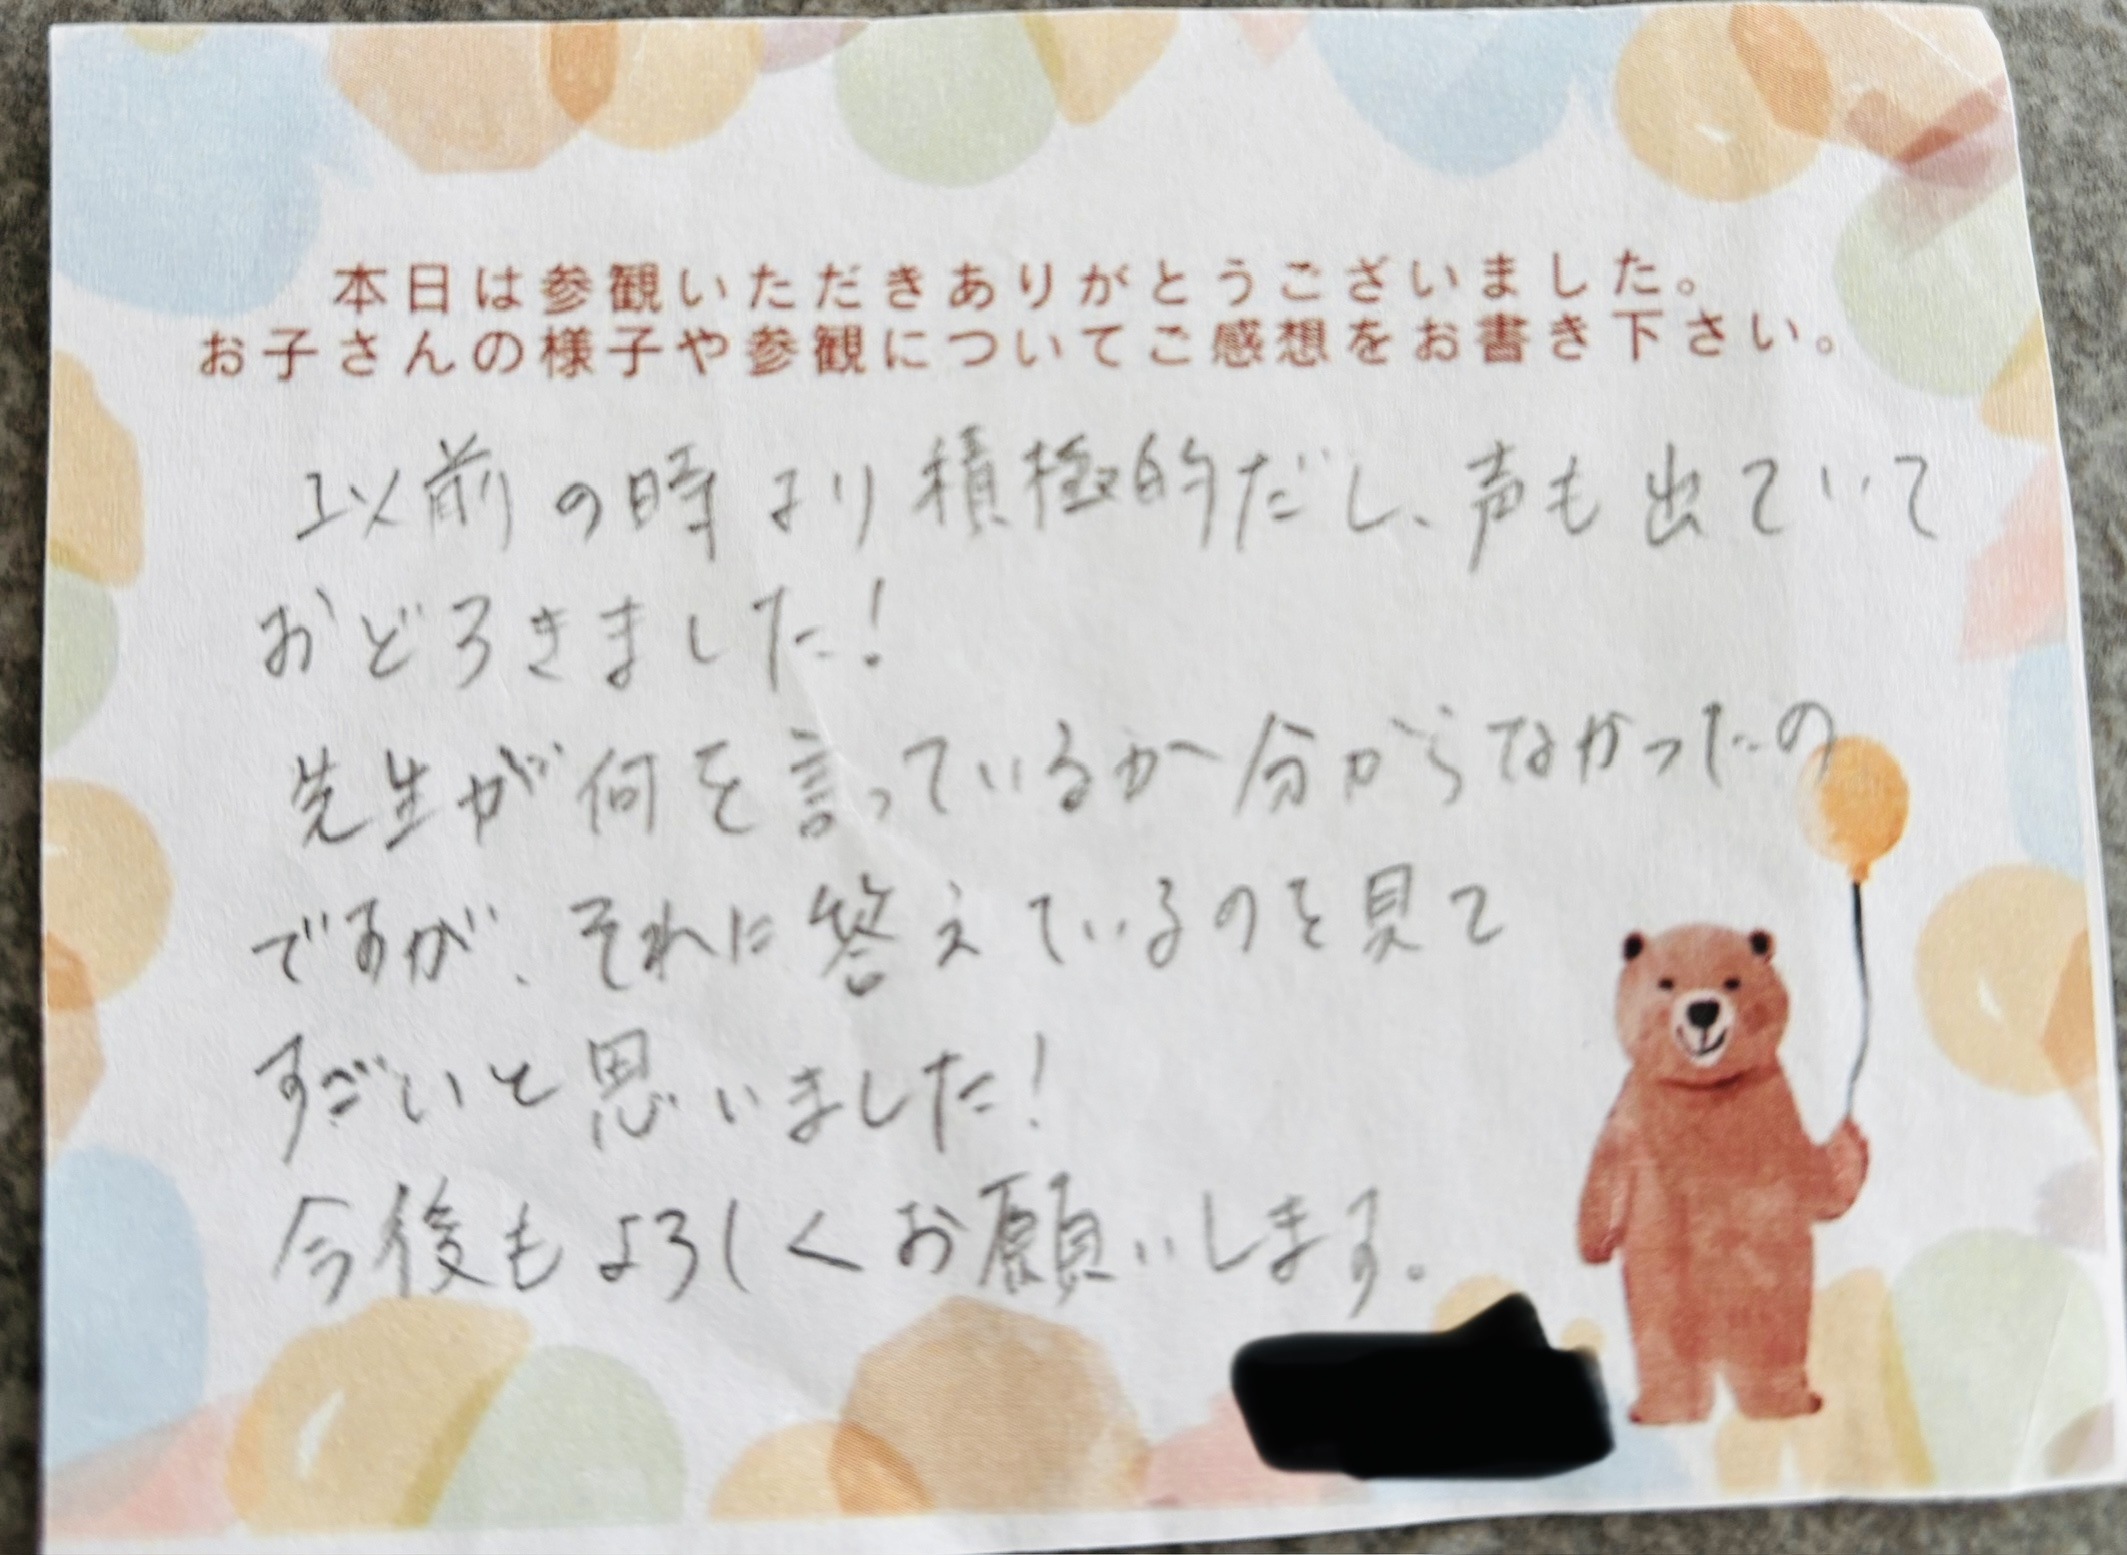 本日は参観いただきありがとうございました。
お子さんの様子や参観についてご感想をお書き下さい。
以前の時より積極的だし、声も出ていて
おどろきました!
先生が何を言っているか分からなかったの
ですが、それに答えているのを見て
すごいと思いました!
今後もよろしくお願いします。